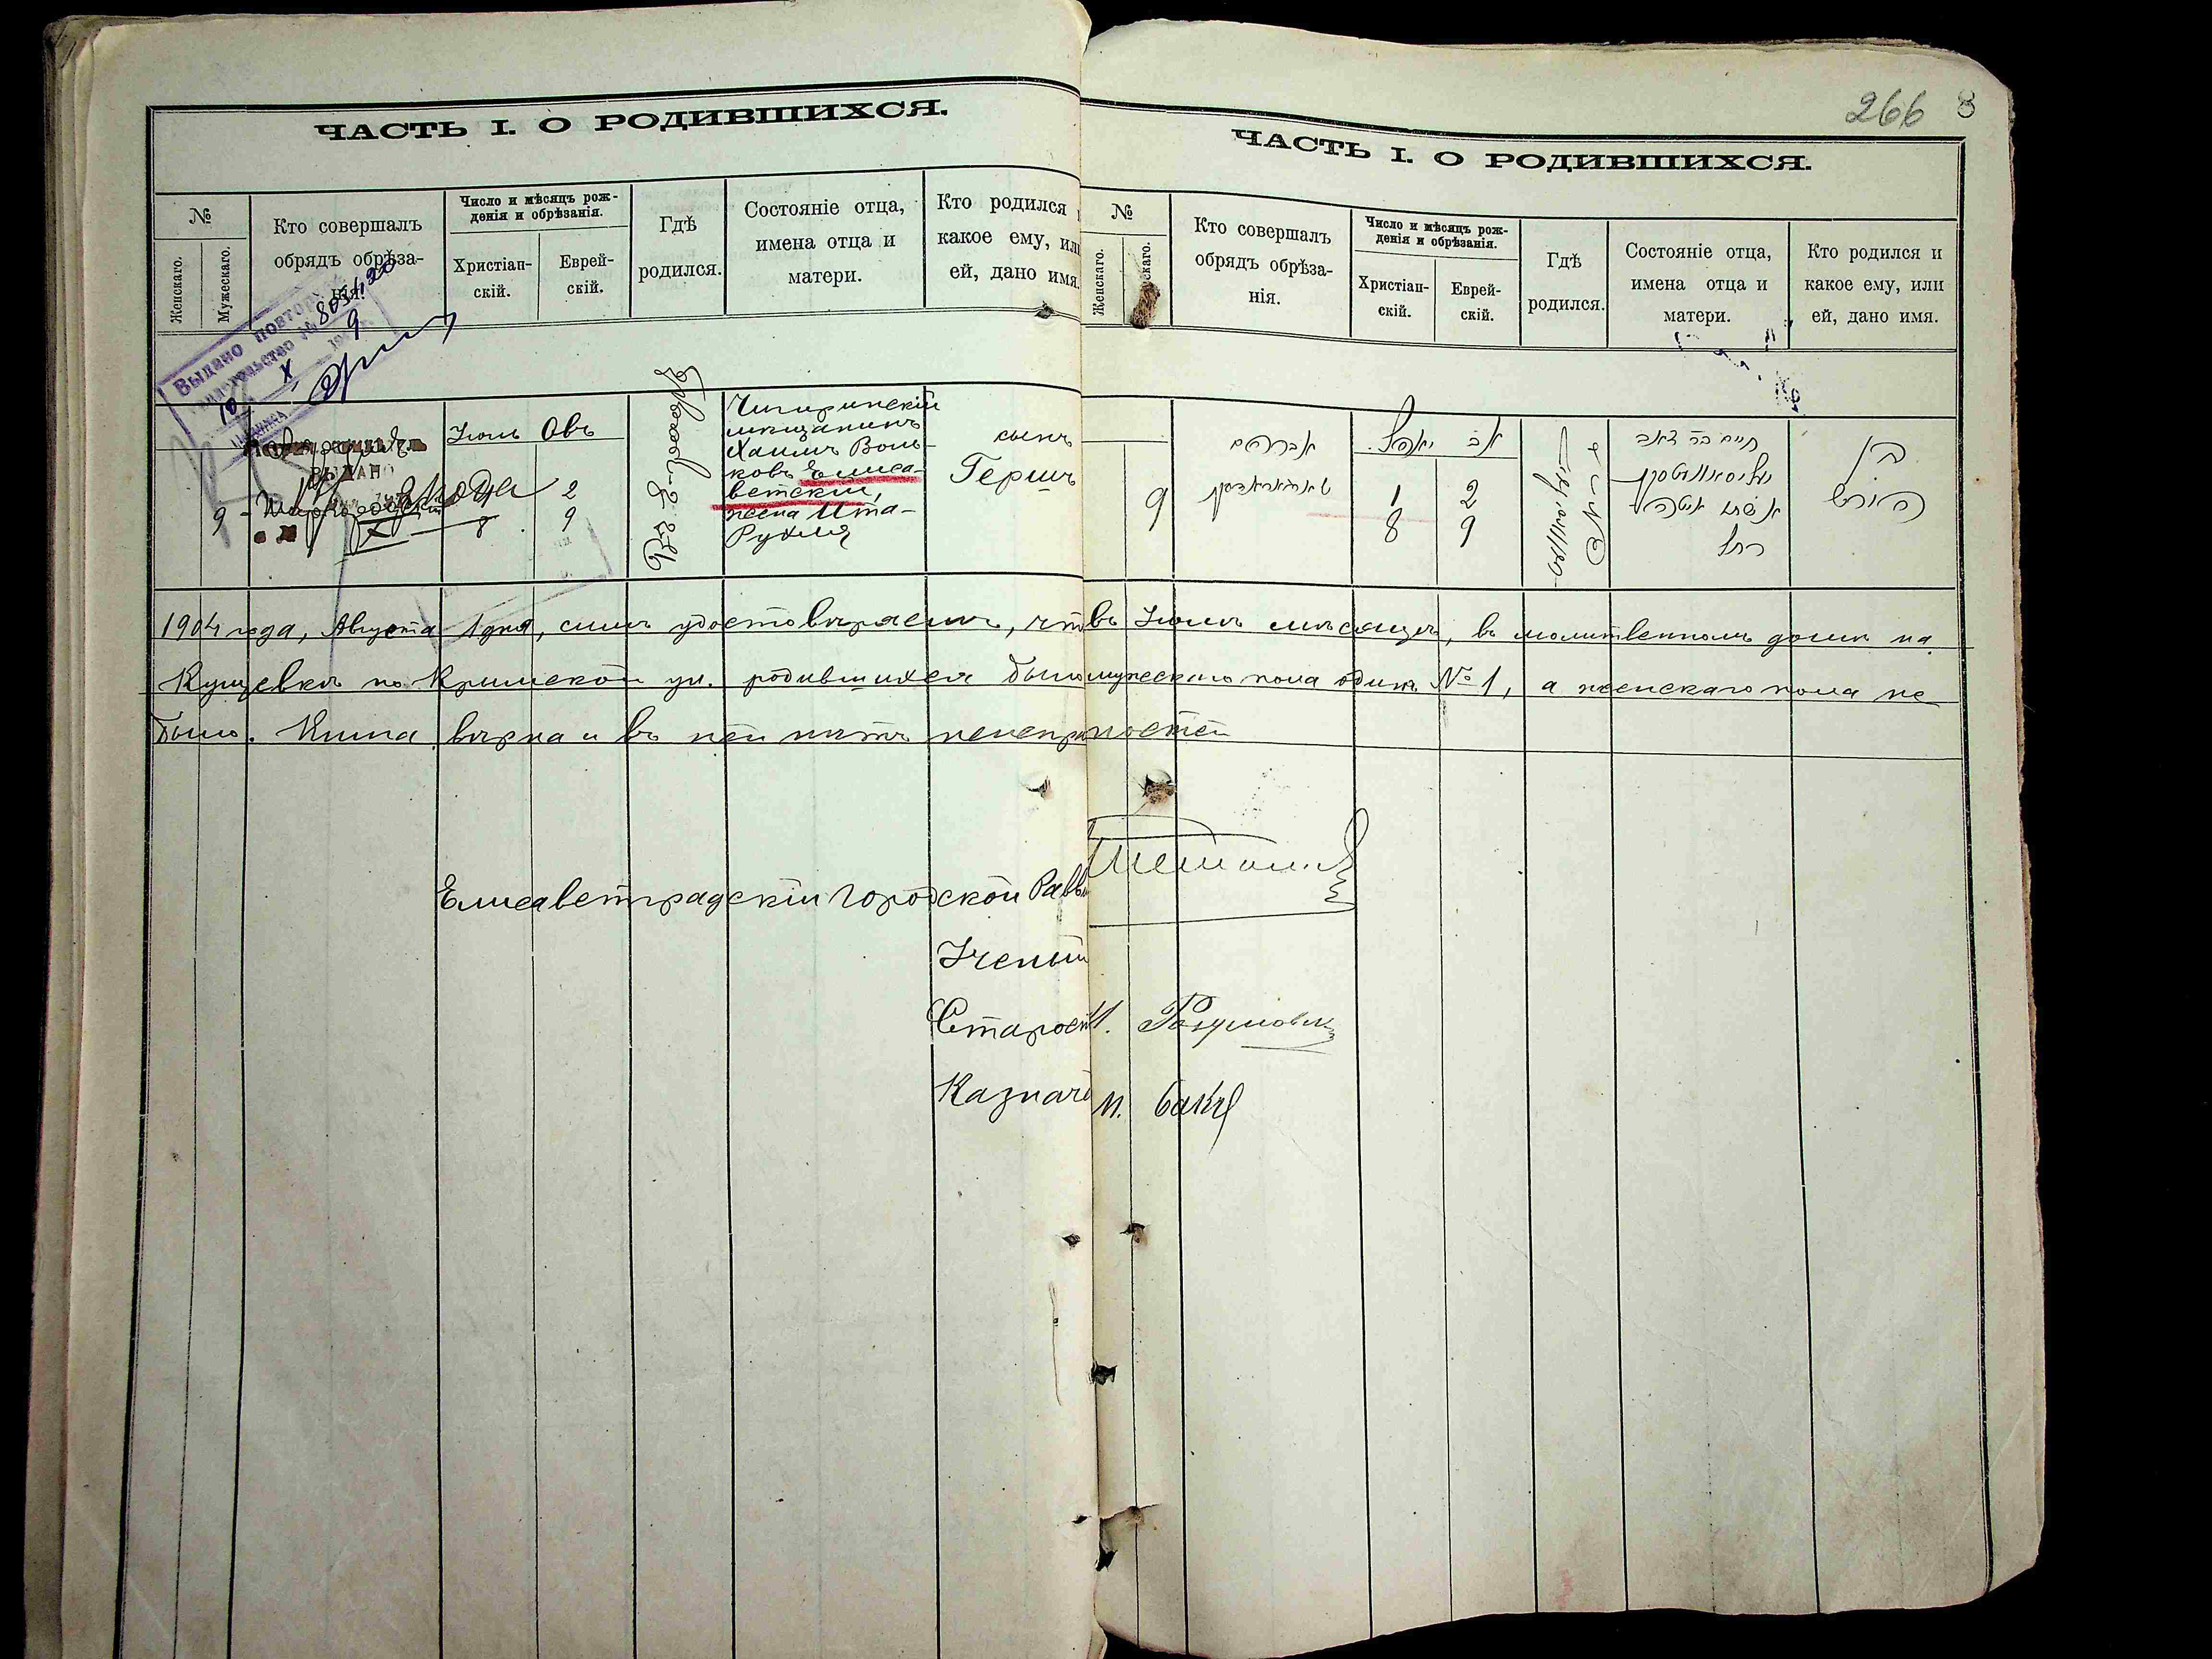 266 8
ЧАСТЬ I. О РОДИВШИХСЯ.
№
Женскаго.
Мужескаго.
Кто совершалъ
обрядъ обрѣза-
нія.
Число и мѣсяцъ рож-
денія и обрѣзанія.
Христіан-
скій.
Еврей-
скій.
Гдѣ
родился.
Состояніе отца,
имена отца и
матери.
Кто родился
какое ему, или
ей, дано имя.
Выдано повторн
№ 803420
10 X 9
ВЫДАНО
9
Іюль Овъ
2
8 9
Чигиринскій
мѣщанинъ
Хаимъ Воль-
ковъ Елиса-
ветскій,
жена Ита-
Рухля
сынъ
Гершъ
ЧАСТЬ I. О РОДИВШИХСЯ.
№
Женскаго.
скаго.
Кто совершалъ
обрядъ обрѣза-
нія.
Число и мѣсяцъ рож-
денія и обрѣзанія.
Христіан-
скій.
Еврей-
скій.
Гдѣ
родился.
Состояніе отца,
имена отца и
матери.
Кто родился и
какое ему, или
ей, дано имя.
9
אברהם
יאהל אב
1 2
8 9
חיים בר זאב
רחל
בן
הירש
1904 года, Августа 1 дня, симъ удостовѣряемъ, что въ Іюлѣ мѣсяцѣ, въ молитвенномъ домѣ на
Кущевкѣ по Крымской ул. родившихся было мужескаго пола одинъ № 1, а женскаго пола не
было. Книга вѣрна и въ ней нѣтъ неисправностей
Елисаветградскій Городской Равви
Ученый
Старост И. Разумов
Казначе М.